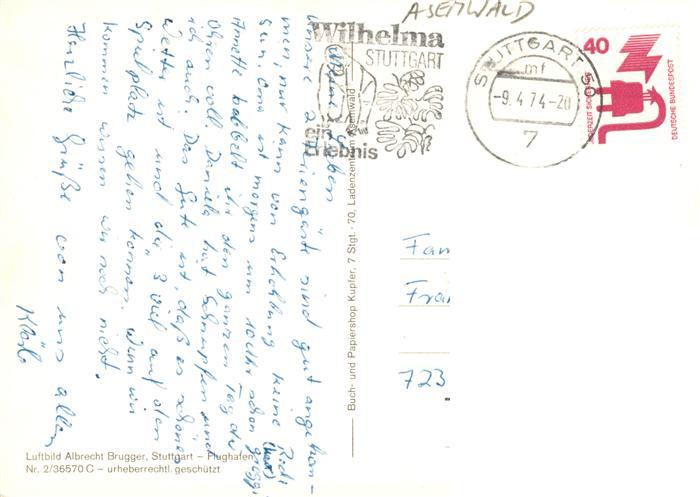 ASEMWALD
Wilhelma
STUTTGART
ein
Erlebnis
STUTTGART 50
mf
-9.4.74-20
7
40
JEDERZEIT SICHERHEIT
DEUTSCHE BUNDESPOST
Lieben
unsere 2 Feriengäste sind gut angekom-
men, nur kann von Erholung keine Rede
sein. Oma ist morgens um 10 Uhr schon
Annette babbelt ihr den ganzen Tag die
Ohren voll. Daniela hat Schnupfen und
ich auch. Das Gute ist, daß es schönes
Wetter ist und die 3 viel auf den
Spielplatz gehen können. Wann wir
kommen wissen wir noch nicht.
Herzliche Grüße von uns allen
Buch- und Papiershop Kupfer, 7 Stgt.-70, Ladenzentrum Asemwald
Fam
Fra
723
Luftbild Albrecht Brugger, Stuttgart – Flughafen
Nr. 2/36570 C – urheberrechtl. geschützt